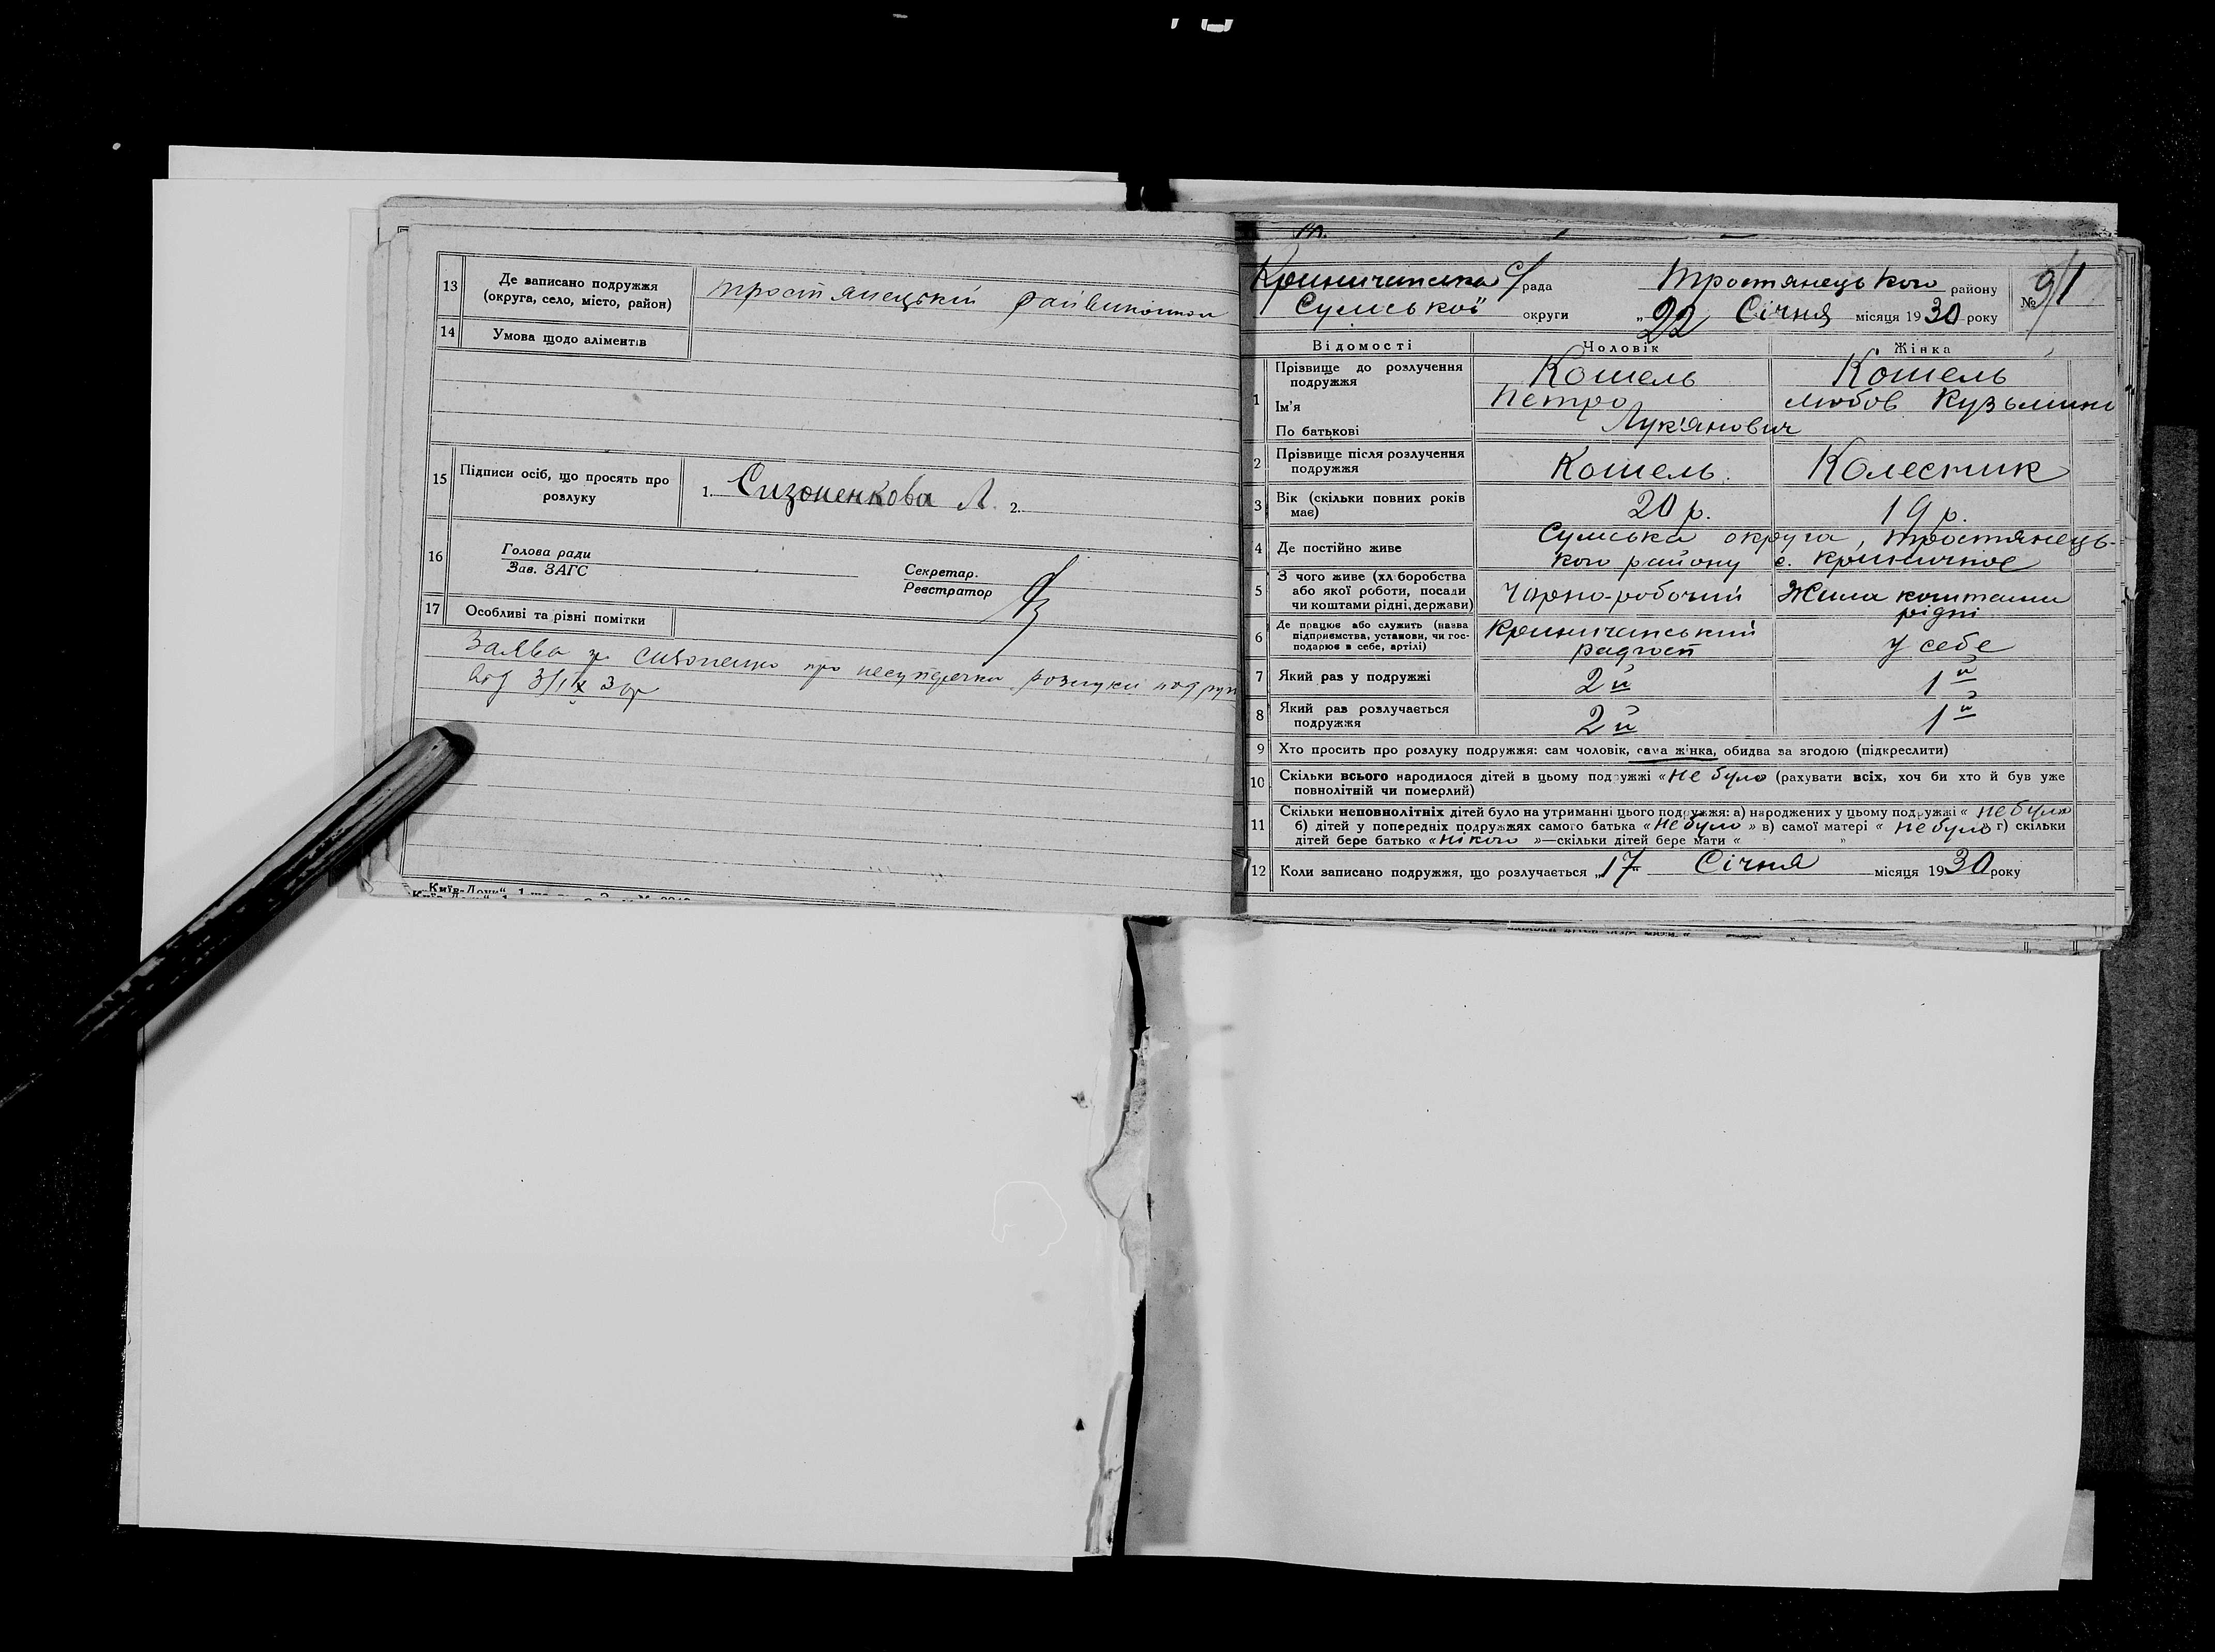 13 Де записано подружжя (округа, село, місто, район) Тростянецький райвиконком
14 Умова щодо аліментів
15 Підписи осіб, що просять про розлуку 1. Сизоненкова Л. 2.
16 Голова ради
Зав. ЗАГС
Секретар.
Реєстратор
17 Особливі та різні помітки
Заява гр. Сизоненко про несуперечки розлуки подруж
від 3/IX 30р
Криничанська с/рада Тростянецького району № 9/1
Сумської округи „22 Січня місяця 1930 року
Відомості Чоловік Жінка
1 Прізвище до розлучення подружжя Кошель Кошель
Ім'я Петро Любов Кузьмин
По батькові Лук'янович
2 Прізвище після розлучення подружжя Кошель. Колесник
3 Вік (скільки повних років має) 20 р. 19 р.
4 Де постійно живе Сумська округа, Тростянець-
кого району с. Криничное
5 З чого живе (хл боробства або якої роботи, посади чи коштами рідні, держави) Чорно-робочий Жила коштами рідні
6 Де працює або служить (назва підприємства, установи, чи господарює в себе, артілі) Криничанський радгосп У себе
7 Який раз у подружжі 2й 1й
8 Який раз розлучається подружжя 2й 1й
9 Хто просить про розлуку подружжя: сам чоловік, сама жінка, обидва за згодою (підкреслити)
10 Скільки всього народилося дітей в цьому подружжі «не було (рахувати всіх, хоч би хто й був уже
повнолітній чи померлий)
11 Скільки неповнолітніх дітей було на утриманні цього подружжя: а) народжених у цьому подружжі « не було
б) дітей у попередніх подружжях самого батька «не було » в) самої матері « не було» г) скільки
дітей бере батько «нікого »—скільки дітей бере мати « »
12 Коли записано подружжя, що розлучається „17" Січня місяця 1930 року